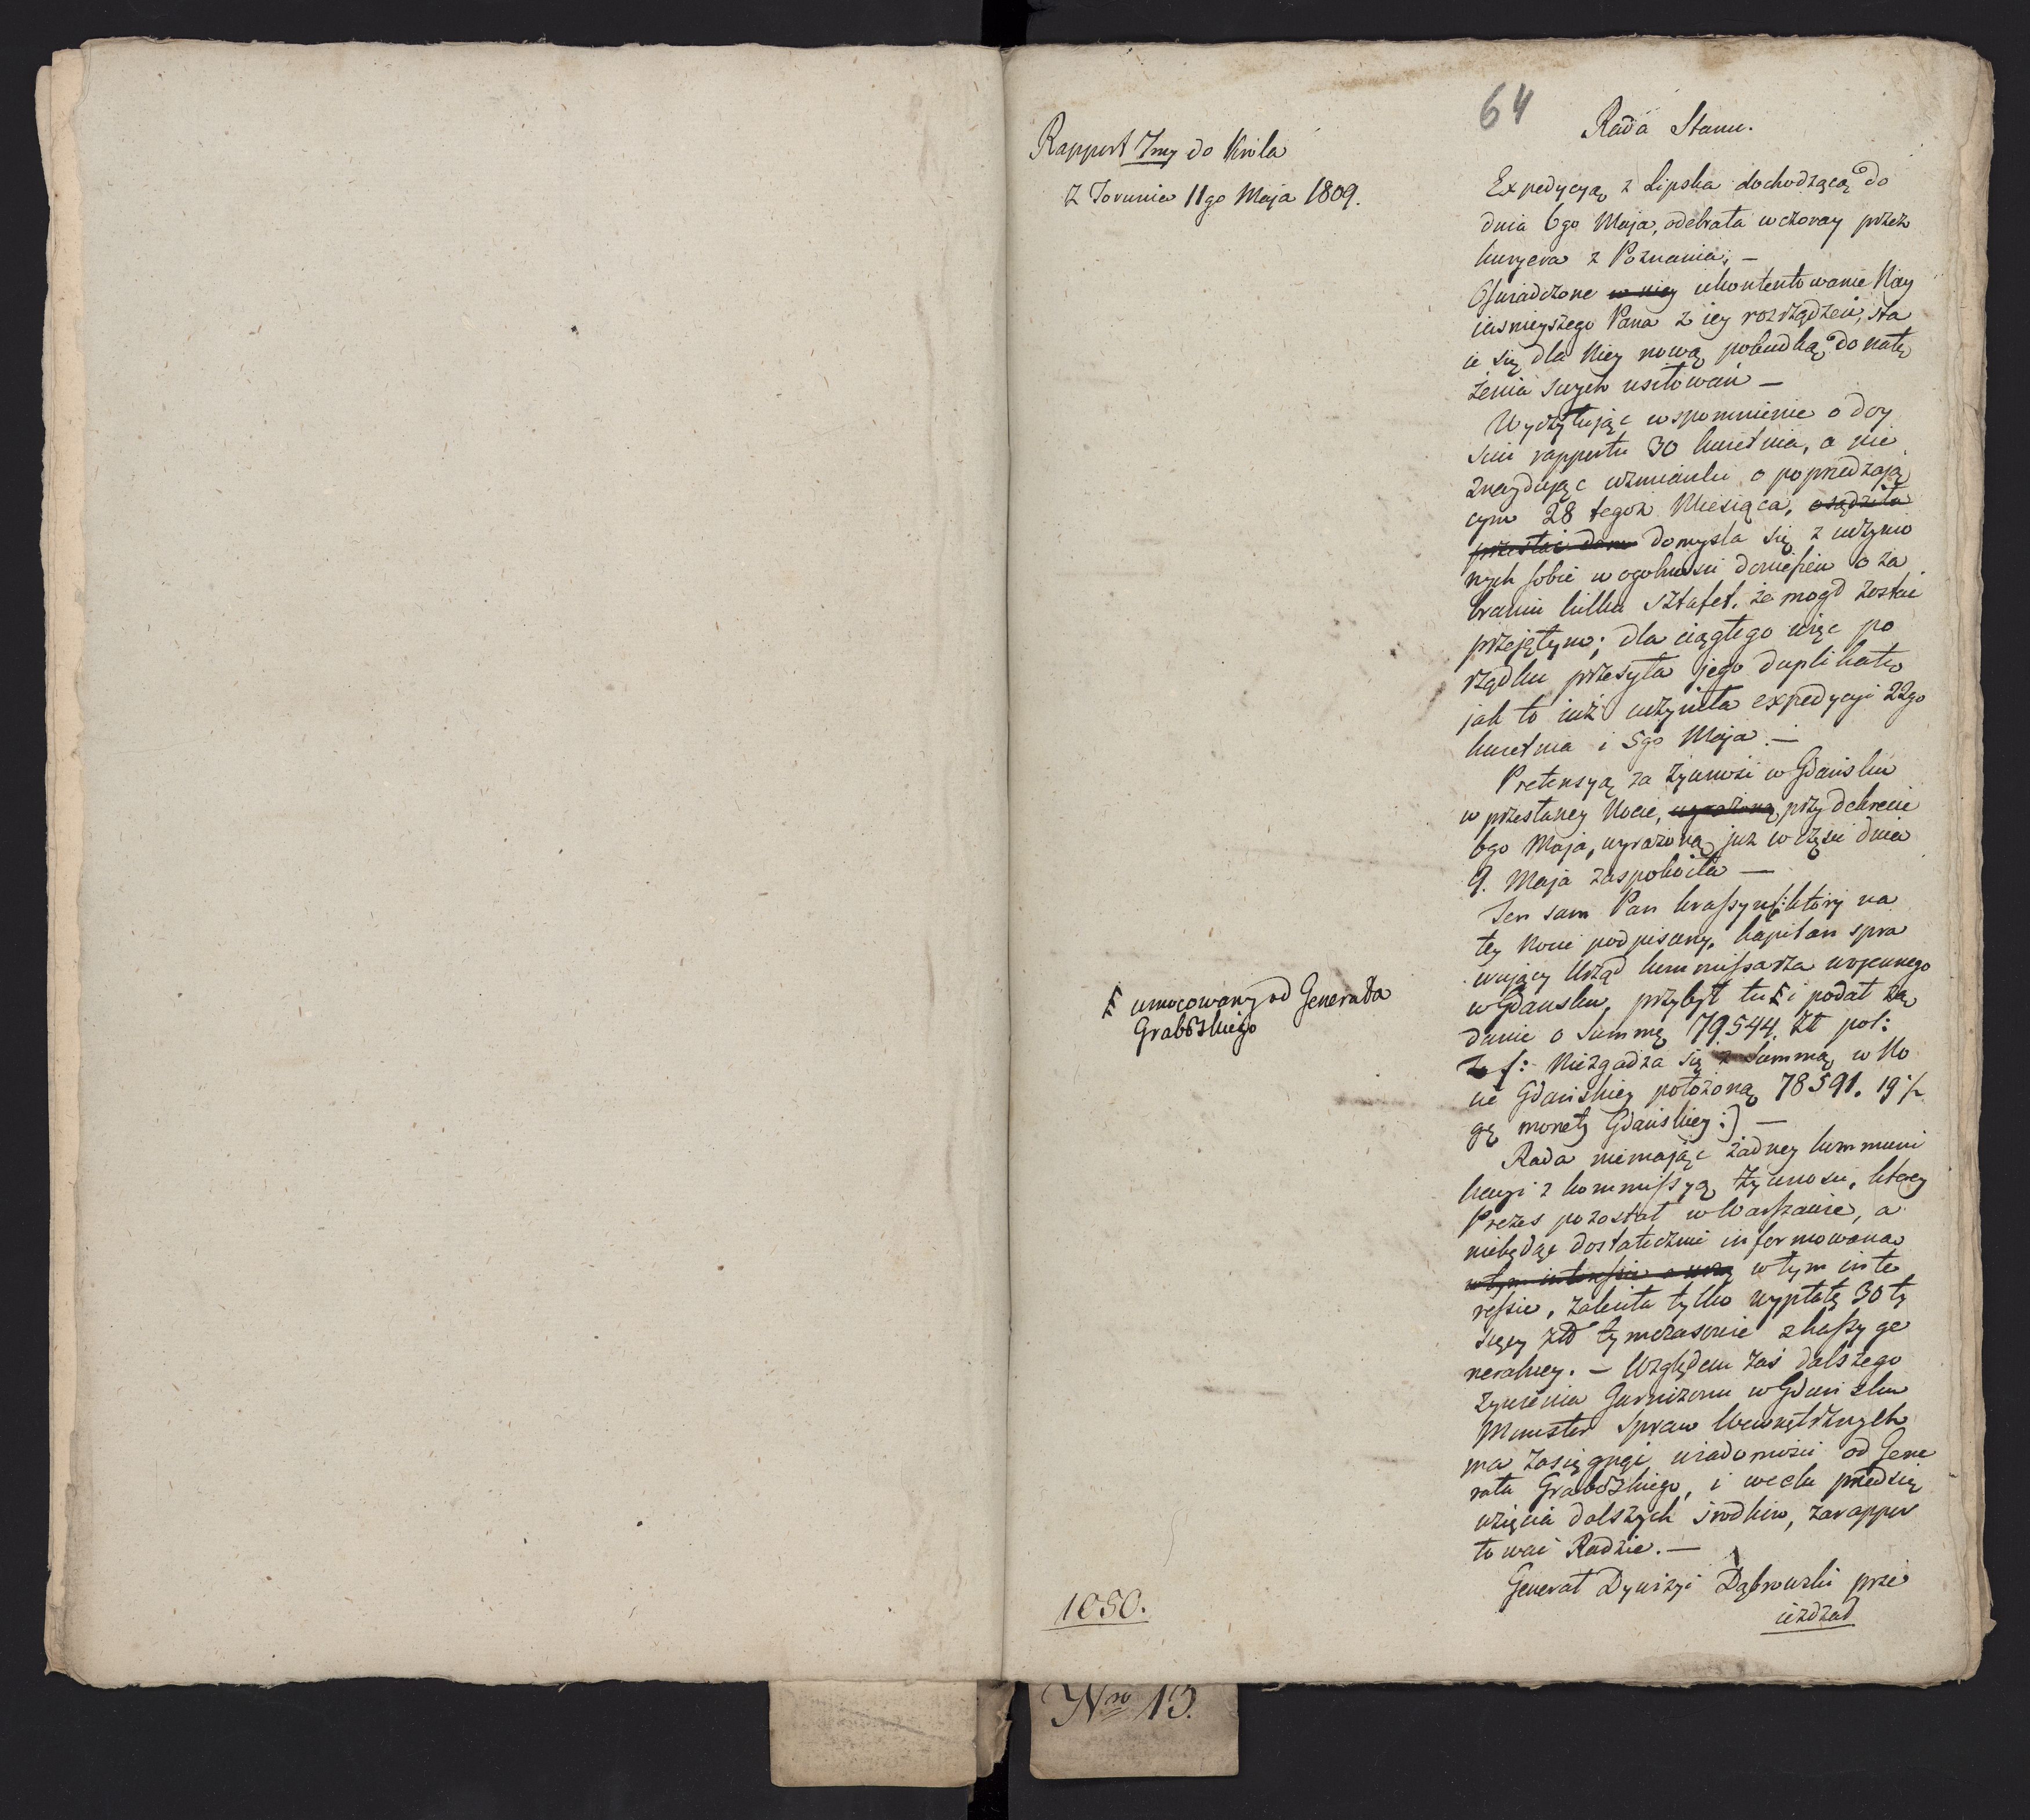 64
Rada Stanu.
Rapport 7my do Króla
Z Torunia 11go Maja 1809.
Expedycyą z Lipska dochodzącą do
dnia 6go Maja, odebrała wczoray przez
kuryera z Poznania; —
Oświadczone w niey ukontentowanie Nay
iasnieyszego Pana z iey rozrządzeń, sta
ie się dla Niey nową pobudką do natę
żenia swych usiłowań —
Wyczytując wspomnienie o doy
ściu rapportu 30 kwietnia, a nie
znayduiąc wzmianki o poprzedzają
cym 28 tegoż Miesiąca, osądziła
przesłać dom domysla się z uczynio
nych sobie w ogolności doniesień o za
braniu kilku sztafet, że mogł zostać
przejętym; dla ciągłego więc po
rządku przesyła jego duplikatę
jak to iuż uczyniła expedycyi 22go
kwietnia i 5go Maja. —
Pretensyą za żywność w Gdańsku
w przesłaney Nocie, wyrażoną przy dekrecie
6go Maja, wyrażoną już w części dnia
9. Maja zaspokoiła —
Ten sam Pan Kraszyns: który na
tey Nocie podpisany, kapitan spra
wujący Urząd kommissarza wojennego
w Gdansku, przybył tu i podał żą
danie o Summę 79544 Zł pol:
Niezgadza się z Summą w No
cie Gdańskiey położoną 78591. 19 /
gę monety Gdańskiey:) —
umocowany od Generała
Grabowskiego
Rada niemając żadney kommuni
kacyi z kommissyą żywności, którey
Prezes pozostał w Warszawie, a
niebędąc dostatecznie informowana
w tym interessie w tym inte
ressie, zaleciła tylko wypłatę 30 ty
sięcy Zł tymczasowie z kassy ge
neralney. — Względem zaś dalszego
żywienia Garnizonu w Gdańsku
Minister Spraw Wewnętrznych
ma zasięgnąć wiadomości od Gene
rała Grabowskiego, i w celu przedsię
wzięcia dalszych środków, zarappor
tować Radzie. —
Generał Dywizyi Dąbrowski prze
ieżdżał
1050.
Nro 13.